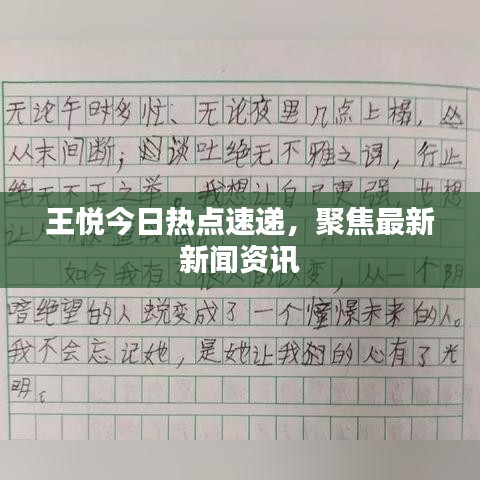 无论午时多忙、无论夜里几点上榻，
从未间断；谈吐绝无不雅之词，行止
绝无不正之举。我想让自己更强，也想
让人
王悦今日热点速递，聚焦最新
新闻资讯
如今我有了很大改变，从一个阴
暗绝望的人蜕变成了一个憧憬未来的人。
我不会忘记她，是她让我的心有了光
明。